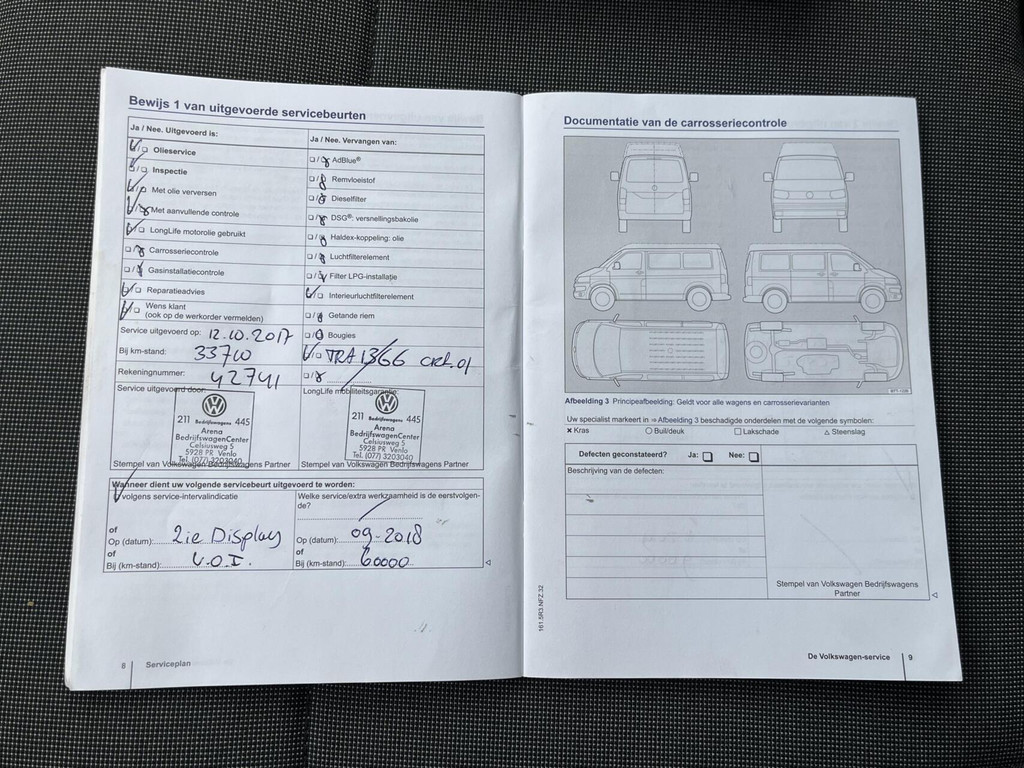 Bewijs 1 van uitgevoerde servicebeurten
Ja / Nee. Uitgevoerd is:
Olieservice
Inspectie
Met olie verversen
Met aanvullende controle
LongLife motorolie gebruikt
Carrosseriecontrole
Gasinstallatiecontrole
Reparatieadvies
Wens klant
(ook op de werkorder vermelden)
Ja / Nee. Vervangen van:
AdBlue®
Remvloeistof
Dieselfilter
DSG®: versnellingsbakolie
Haldex-koppeling: olie
Luchtfilterelement
Filter LPG-installatie
Interieurluchtfilterelement
Getande riem
Bougies
TRA 1366
Service uitgevoerd op: 12.10.2017
Bij km-stand: 33710
Rekeningnummer: 42741
Service uitgevoerd door:
211 Bedrijfswagens 445
Arena
BedrijfswagenCenter
Celsiusweg 5
5928 PR Venlo
Tel. (077) 3203040
Stempel van Volkswagen Bedrijfswagens Partner
LongLife mobiliteitsgarantie:
211 Bedrijfswagens 445
Arena
BedrijfswagenCenter
Celsiusweg 5
5928 PR Venlo
Tel. (077) 3203040
Stempel van Volkswagen Bedrijfswagens Partner
Wanneer dient uw volgende servicebeurt uitgevoerd te worden:
volgens service-intervalindicatie
of
Op (datum): Zie Display
of
Bij (km-stand): V.O.I.
Welke service/extra werkzaamheid is de eerstvolgen-
de?
Op (datum): 09-2018
of
Bij (km-stand): 60000
8 Serviceplan
Documentatie van de carrosseriecontrole
Afbeelding 3 Principeafbeelding: Geldt voor alle wagens en carrosserievarianten
Uw specialist markeert in ⇒ Afbeelding 3 beschadigde onderdelen met de volgende symbolen:
× Kras ○ Buil/deuk □ Lakschade △ Steenslag
Defecten geconstateerd? Ja: Nee:
Beschrijving van de defecten:
Stempel van Volkswagen Bedrijfswagens
Partner
161.5R3.NFZ.32
De Volkswagen-service 9